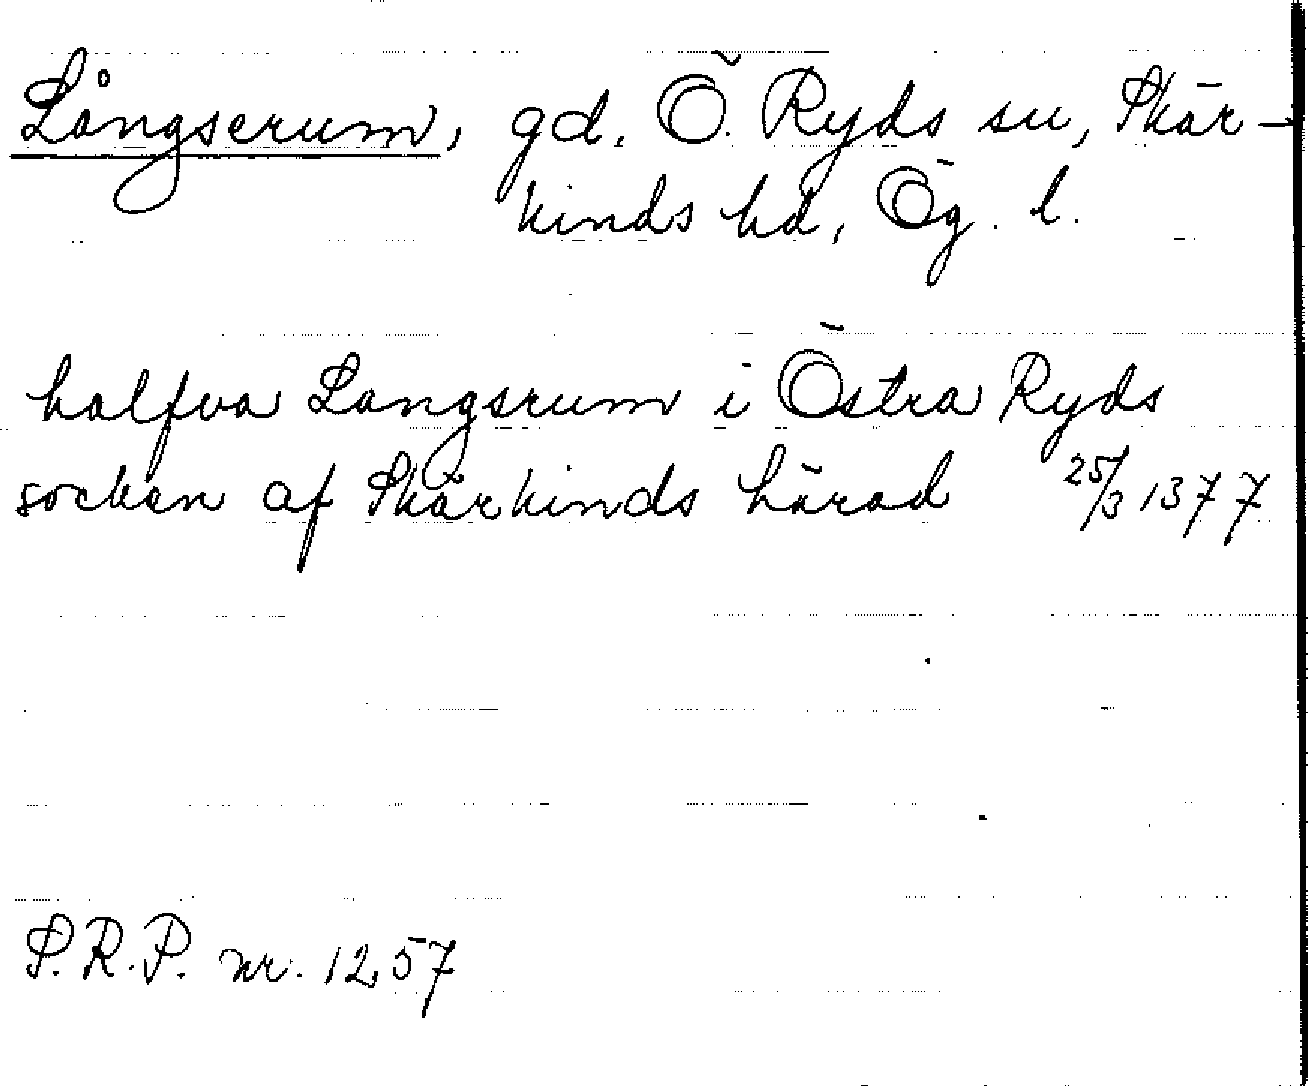 Långserum, gd, Ö. Ryds sn, Skär-
kinds hd, Ög. l.
halfva Langsrum i Östra Ryds
socken af Skärkinds härad 25/3 1377
S.R.P. nr. 1257